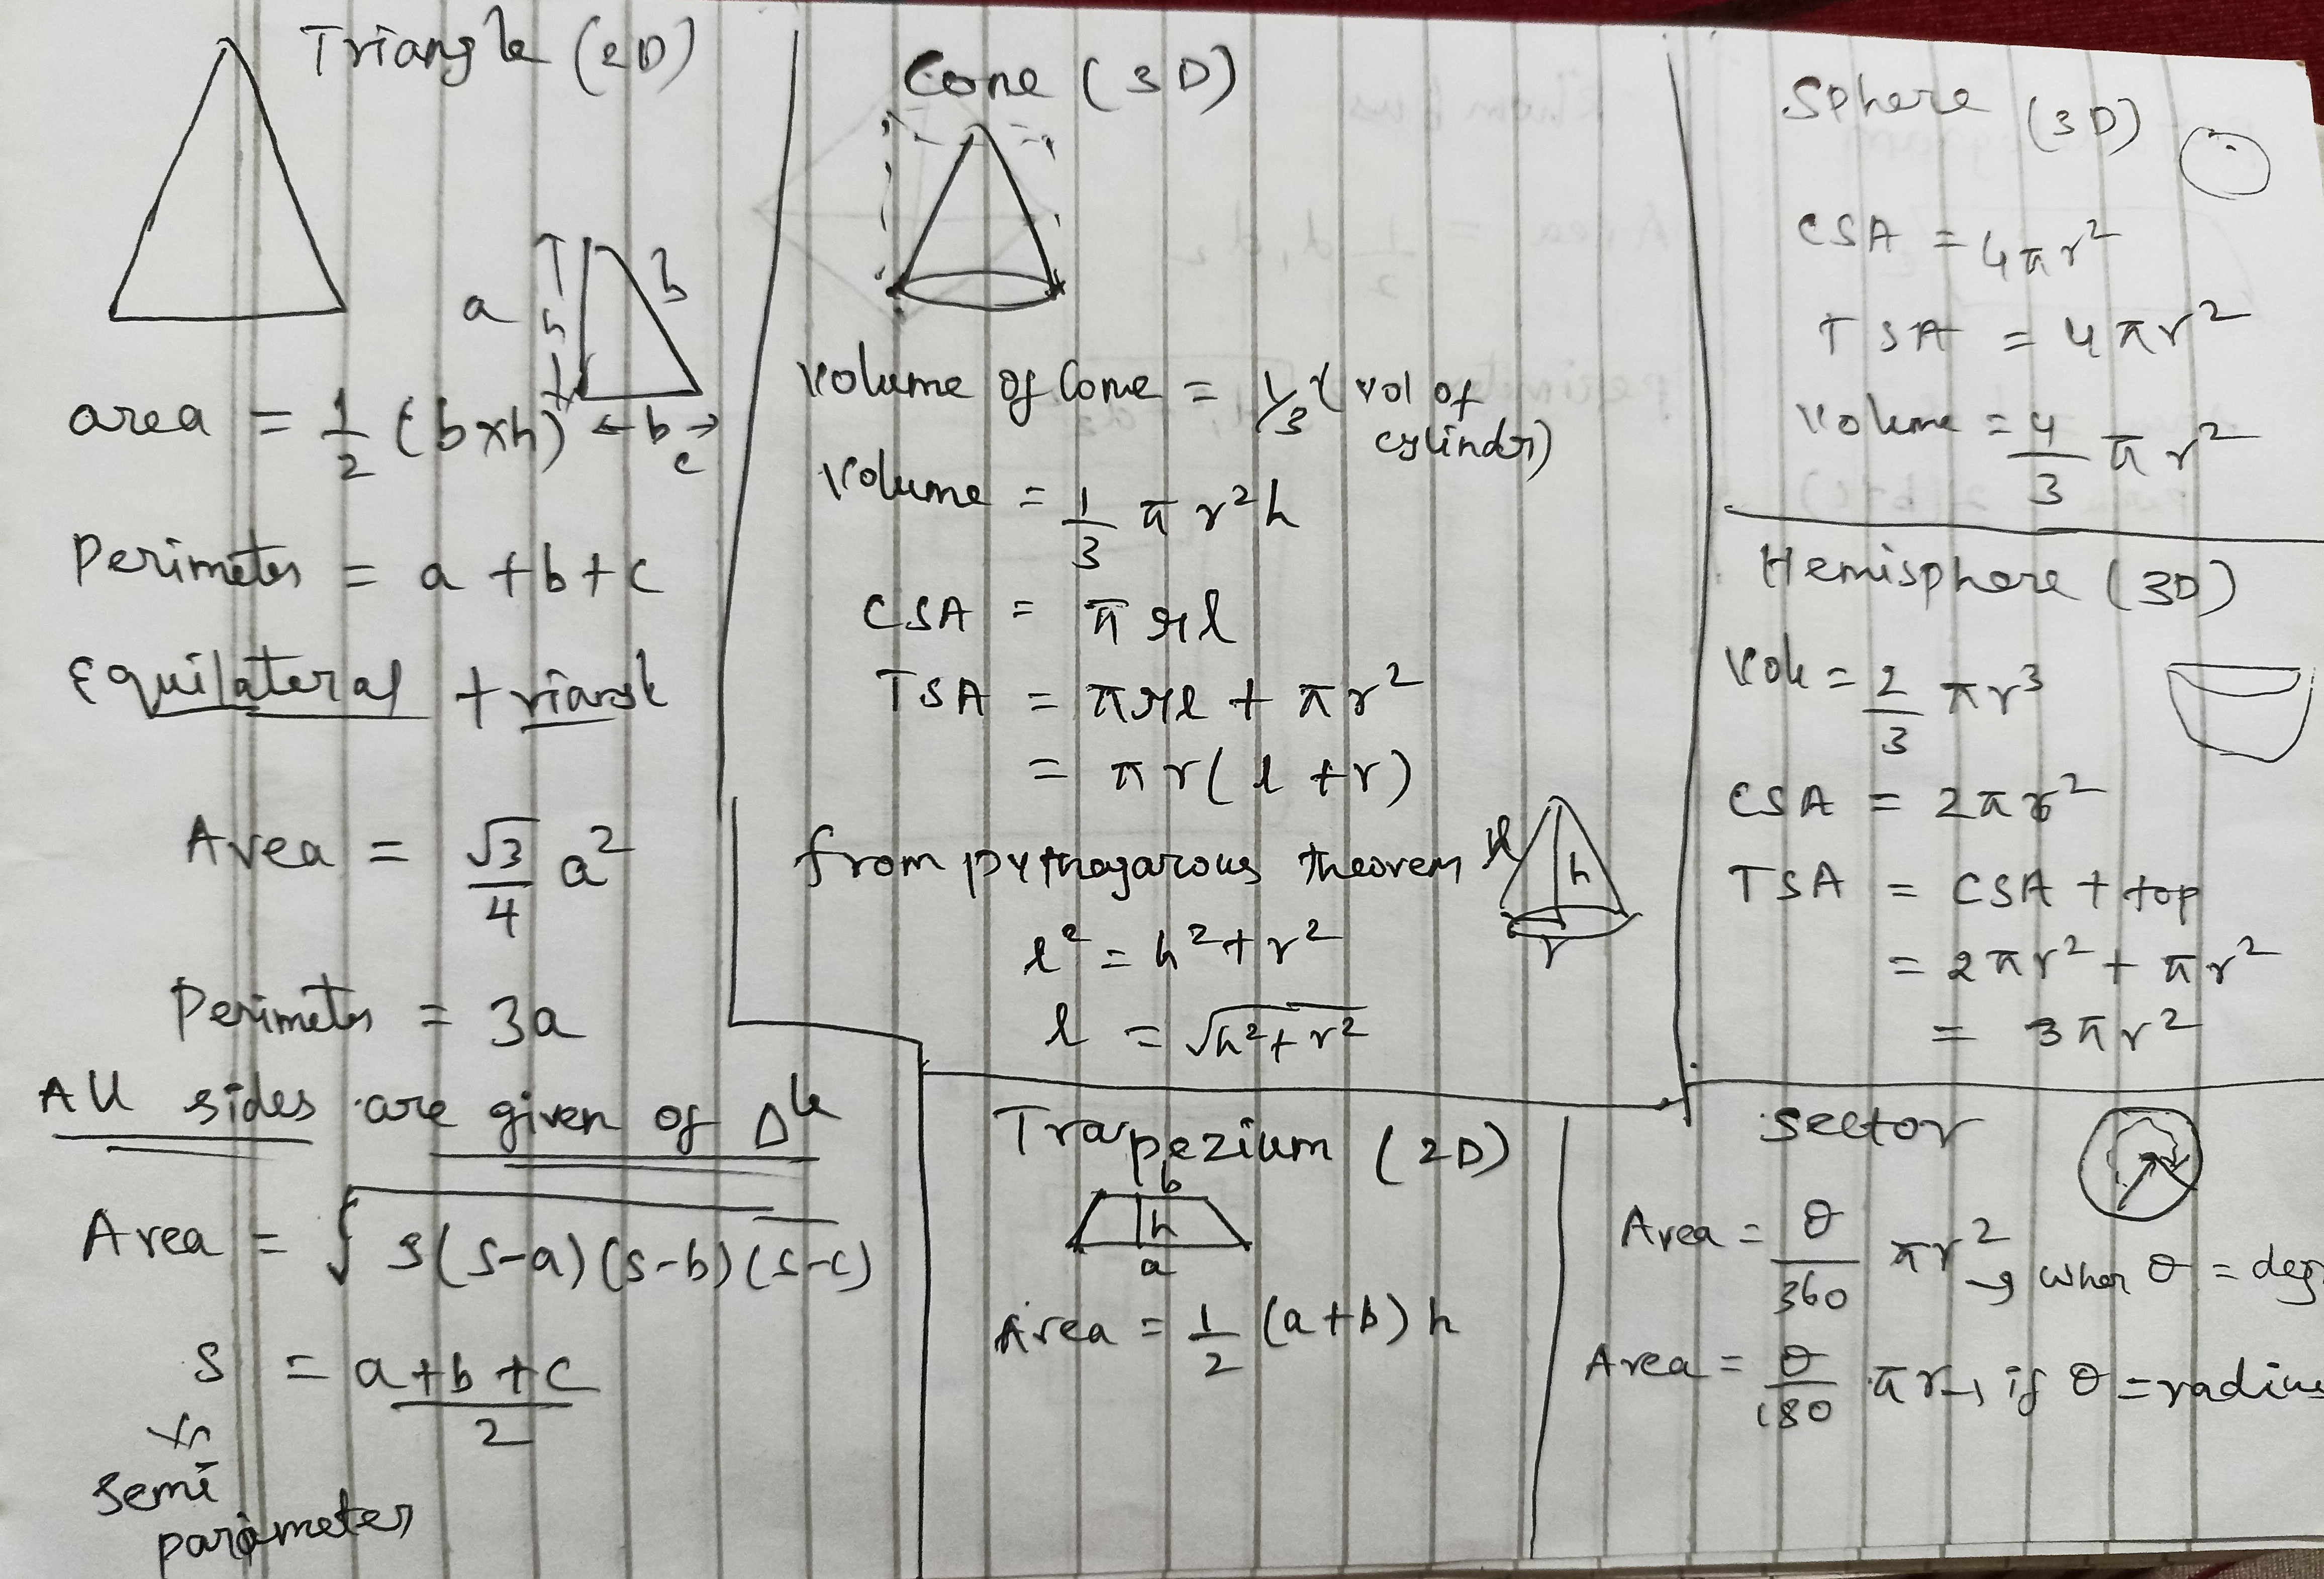 Triangle (2D)
a h b
area = 1/2 (b×h) ←b→
c
Perimeter = a + b + c
Equilateral triangle
Area = √3/4 a²
Perimeter = 3a
All sides are given of Δle
Area = √s(s-a)(s-b)(s-c)
s = a+b+c/2
semi
parameter
Cone (3D)
Volume of Cone = 1/3 (vol of
cylindr)
Volume = 1/3 π r² h
CSA = π r l
TSA = π r l + π r²
= π r ( l + r )
from pythagarous theorem
l h
r
l² = h² + r²
l = √h² + r²
Trapezium (2D)
b
h
a
Area = 1/2 (a+b) h
Sphere (3D)
CSA = 4πr²
TSA = 4πr²
Volume = 4/3 π r²
Hemisphere (3D)
Vol = 2/3 πr³
CSA = 2πr²
TSA = CSA + top
= 2πr² + πr²
= 3πr²
Sector
Area = θ/360 πr² → when θ = deg
Area = θ/180 πr → if θ = radius